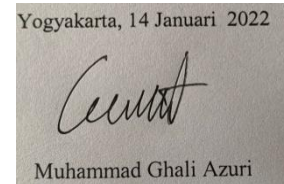 Yogyakarta, 14 Januari 2022
Muhammad Ghali Azuri